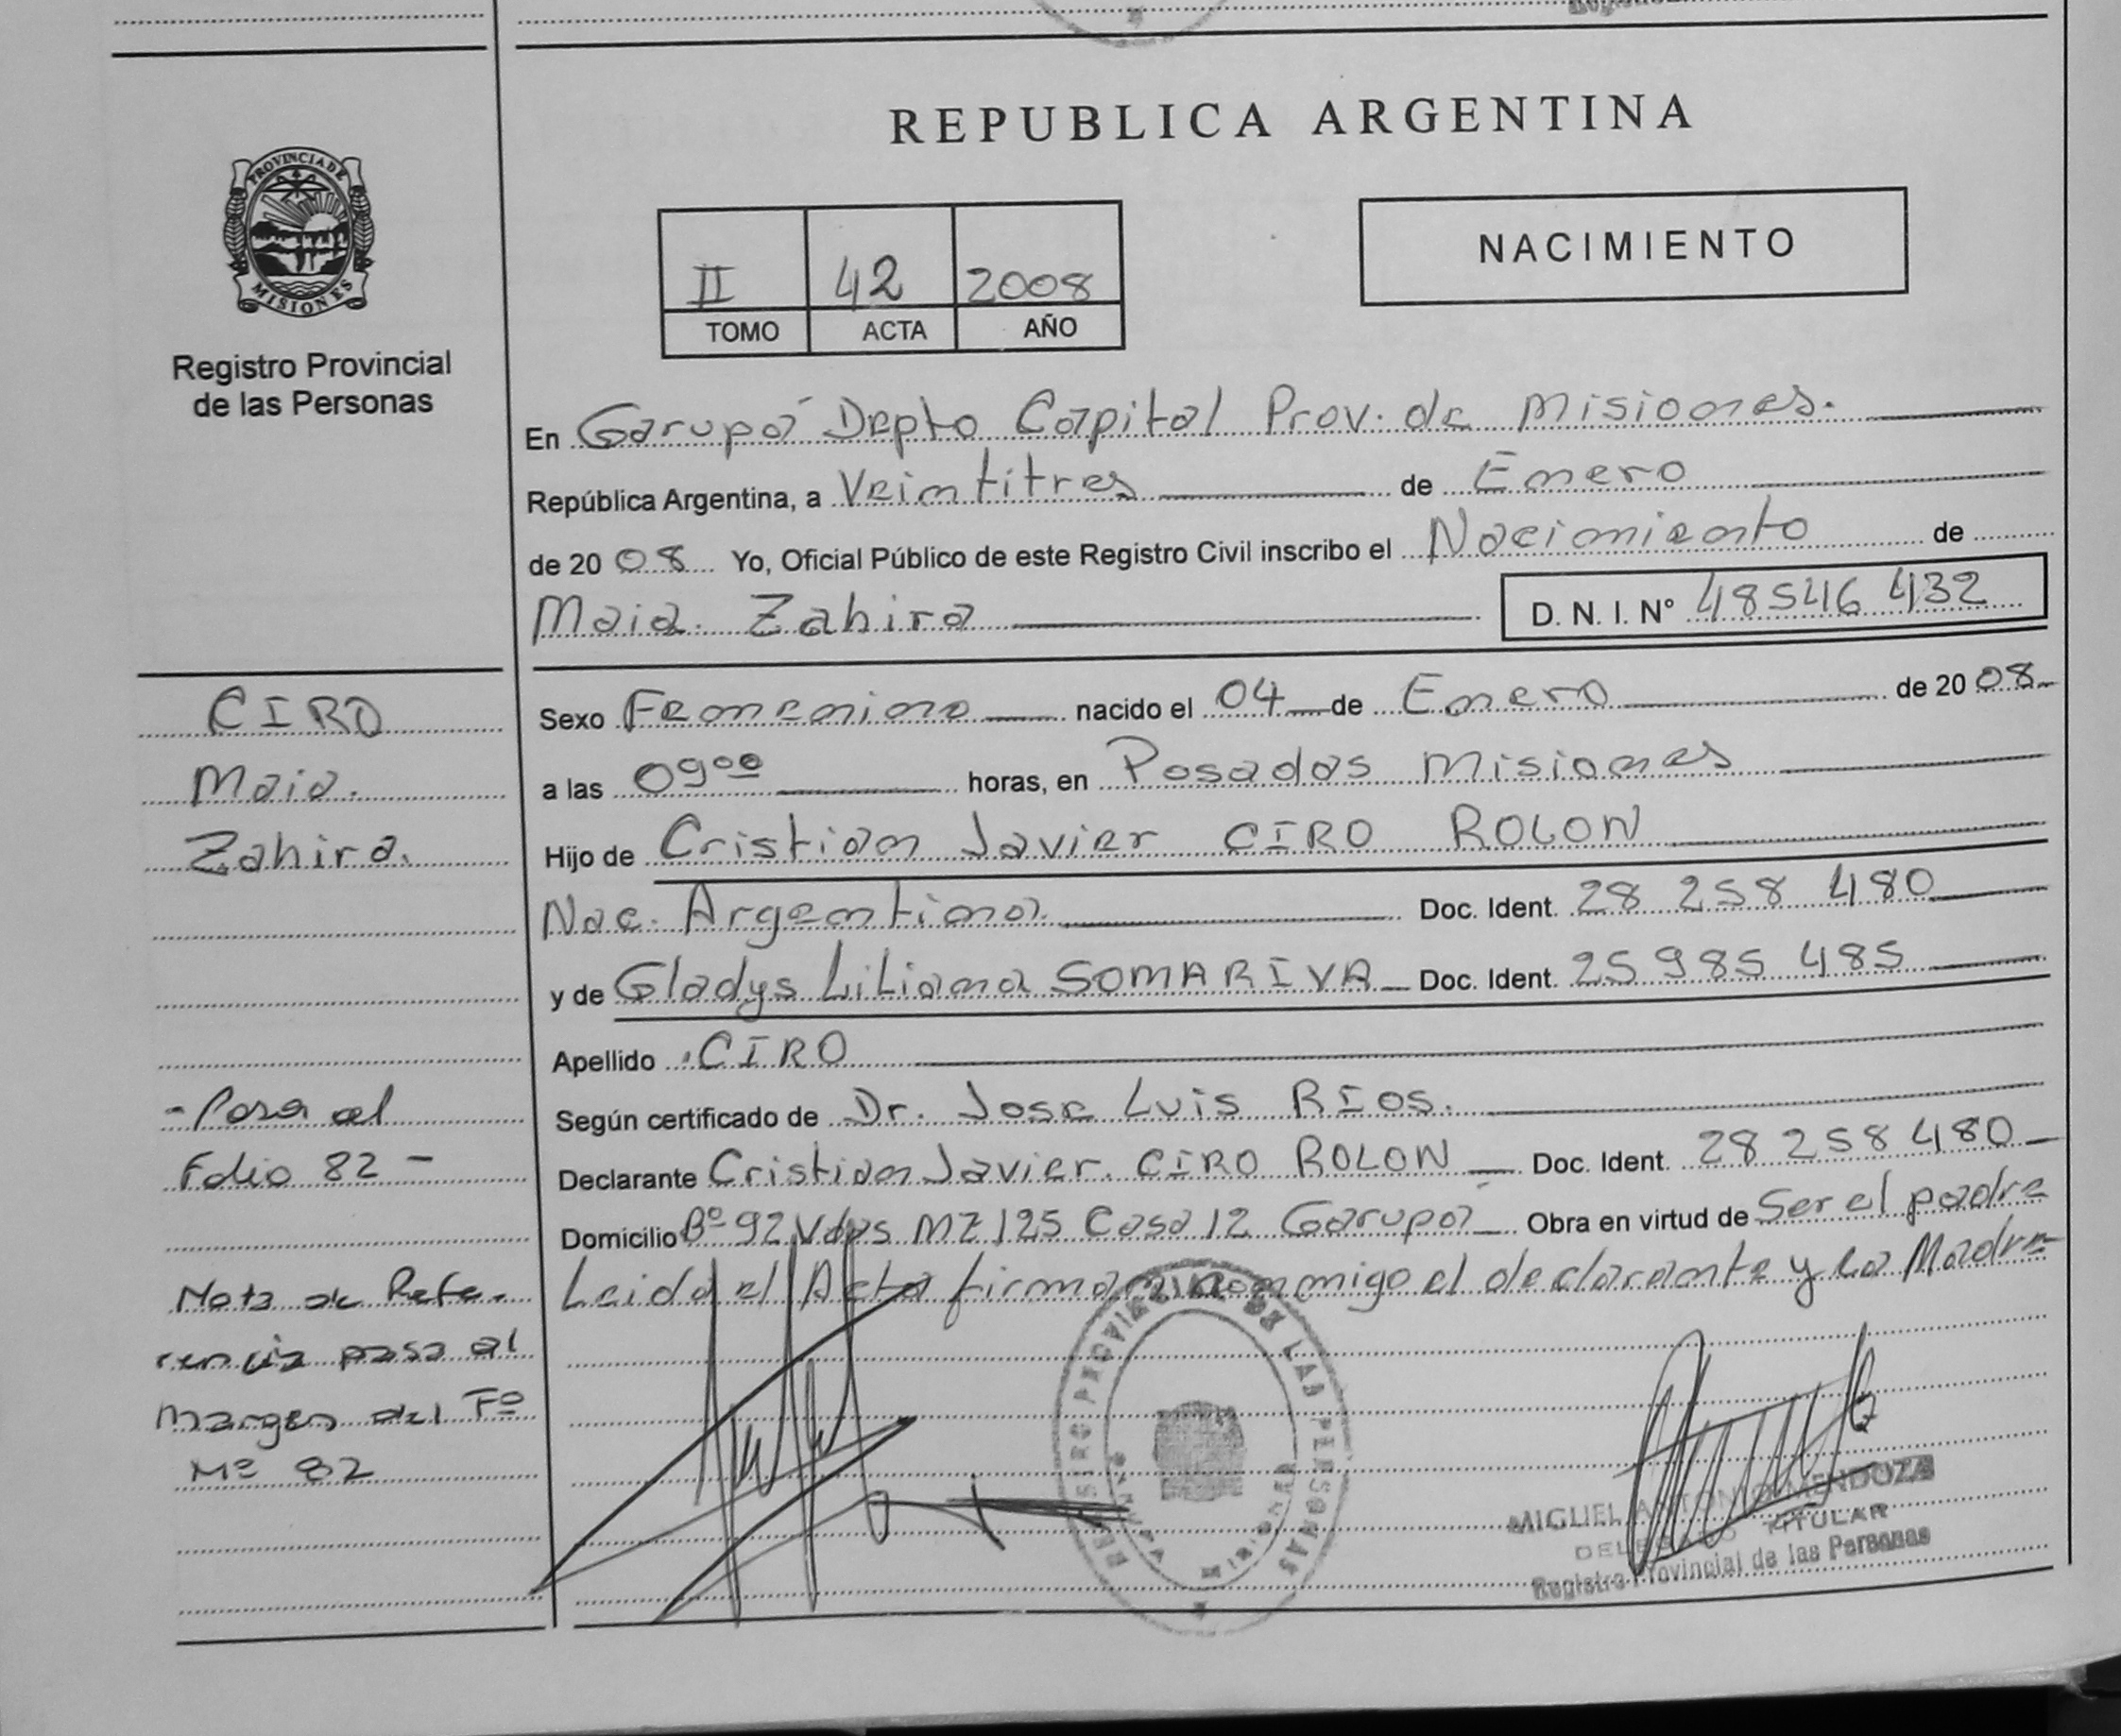 REPUBLICA ARGENTINA
PROVINCIA DE
MISIONES
Registro Provincial
de las Personas
II 42 2008
TOMO ACTA AÑO
NACIMIENTO
En Garupá Depto Capital Prov. de Misiones.
República Argentina, a Veintitres de Enero
de 2008 Yo, Oficial Público de este Registro Civil inscribo el Nacimiento de
Maia Zahira D. N. I. N° 48546 432
CIRO
Maia
Zahira.
Sexo Femenino nacido el 04 de Enero de 2008
a las 09 00 horas, en Posadas Misiones
Hijo de Cristian Javier CIRO ROLON
Nac. Argentina Doc. Ident. 28 258 480
y de Gladys Liliana SOMARIVA Doc. Ident. 25 985 485
Apellido CIRO
Según certificado de Dr. Jose Luis RIOS.
Declarante Cristian Javier CIRO ROLON Doc. Ident. 28 258 480
Domicilio Bº 92 Vdas MZ 125 Casa 12 Garupá Obra en virtud de Ser el padre
Leida el Acta firman conmigo el declarante y la Madre
- Pasa al
Folio 82 -
Nota de Refe-
rencia pasa al
margen del Fº
Nº 82
REGISTRO PROVINCIAL DE LAS PERSONAS
MIGUEL ANTONIO MENDOZA
DELEGADO TITULAR
Registro Provincial de las Personas